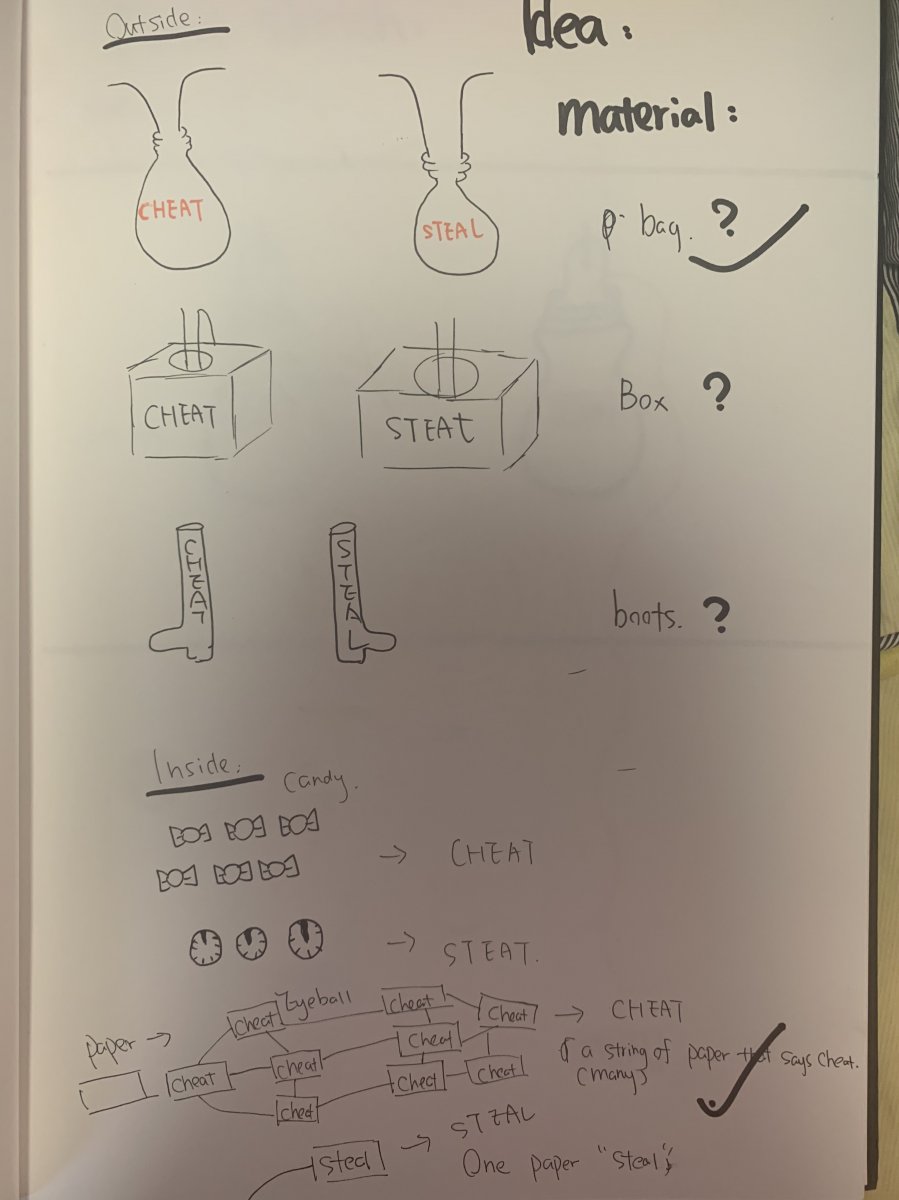 Outside:
Idea:
material:
CHEAT
STEAL
bag. ?
CHEAT
STEAt
Box ?
CHEAT
STEAL
boots. ?
Inside:
Candy.
→ CHEAT
→ STEAT.
Eyeball
Paper →
cheat
cheat
cheat
cheat
cheat
cheat
cheat
cheat
→ CHEAT
a string of paper that says cheat.
(many)
steal
→ STEAL
One paper "steal"